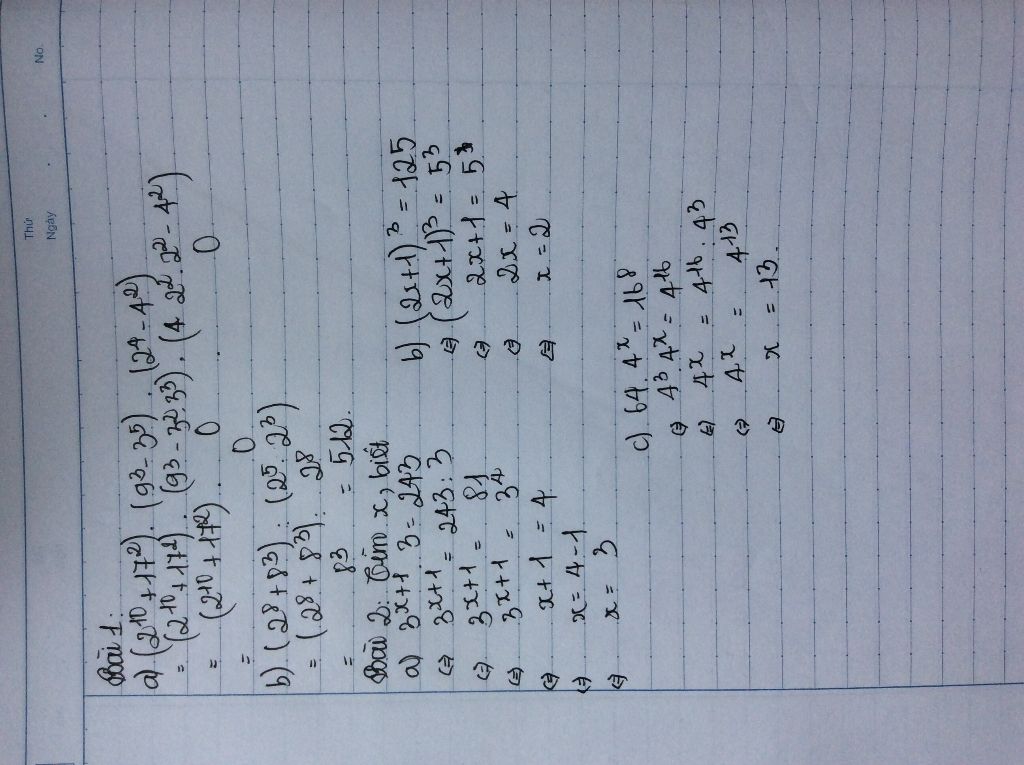 Thứ
Ngày . . No.
Bài 1:
a) (2¹⁰ + 17²) . (9³ - 3⁵) . (2⁴ - 4²)
= (2¹⁰ + 17²) . (9³ - 3² . 3³) . (4 . 2² . 2² - 4²)
= (2¹⁰ + 17²) . 0 . 0
= 0
b) (2⁸ + 8³) : (2⁵ . 2³)
= (2⁸ + 8³) : 2⁸
= 8³ = 512.
Bài 2: Tìm x, biết
a) 3x+1 . 3 = 243
⇔ 3x+1 = 243 : 3
⇔ 3x+1 = 81
⇔ 3x+1 = 3⁴
⇔ x + 1 = 4
⇔ x = 4 - 1
⇔ x = 3
b) (2x+1)³ = 125
⇔ (2x+1)³ = 5³
⇔ 2x+1 = 5
⇔ 2x = 4
⇔ x = 2
c) 64 . 4ˣ = 16⁸
⇔ 4³ . 4ˣ = 4¹⁶
⇔ 4ˣ = 4¹⁶ : 4³
⇔ 4ˣ = 4¹³
⇔ x = 13.